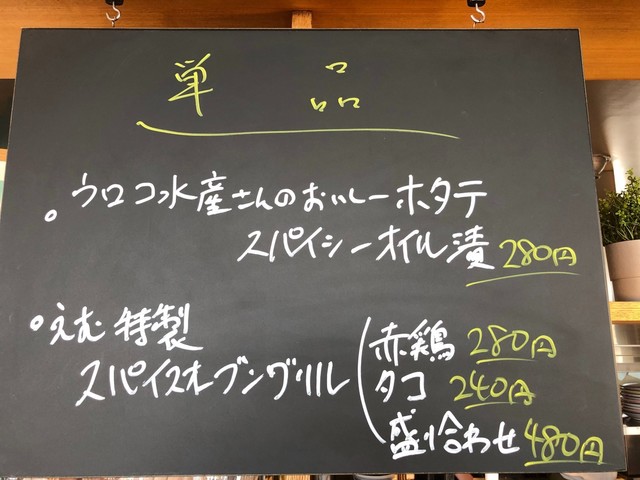 単品
ウロコ水産さんのおいしーホタテ
スパイシーオイル漬 280円
えむ特製
スパイスオーブングリル
赤鶏 280円
タコ 240円
盛り合わせ 480円